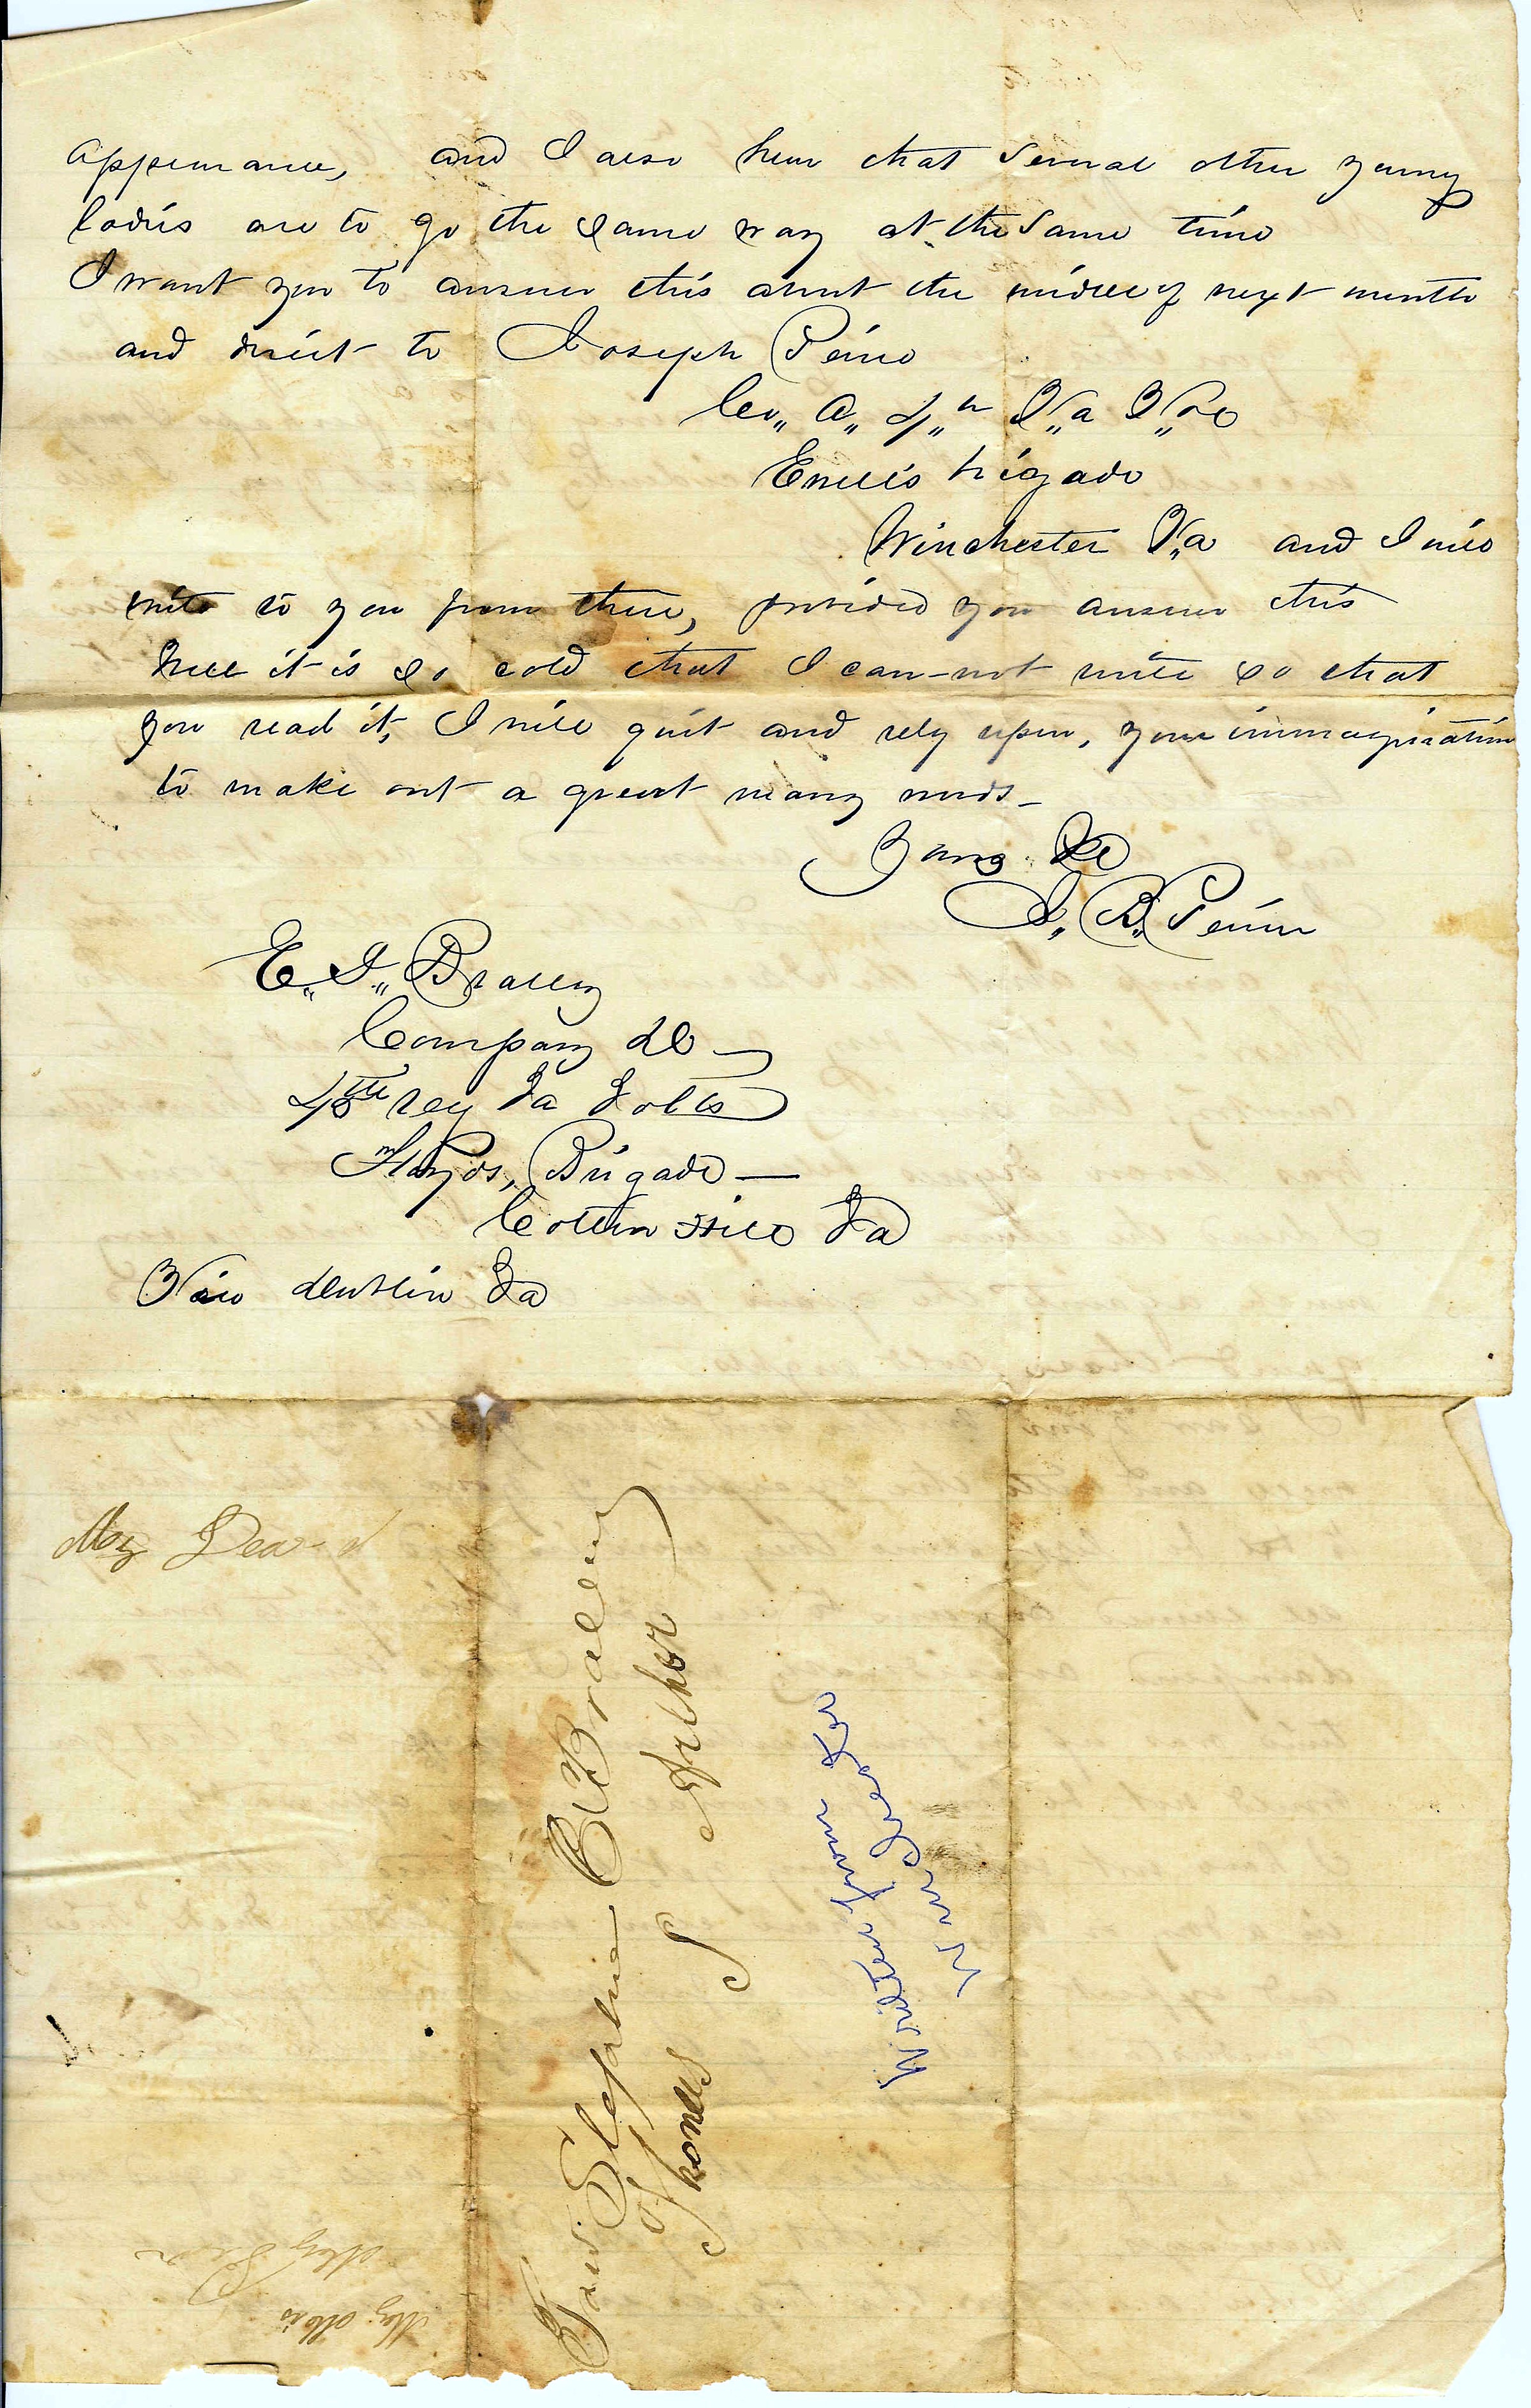 appearance, and I also hear that several other young
ladies are to go the same way at the same time
I want you to answer this about the middle of next month
and direct to Joseph
Co,, A,, 4,,th V,,a V,,
brigade
Winchester V,,a and I will
write to you from there, provided you answer this
Well it is so cold that I can-not write so that
you read it, I will quit and rely upon, your immagination
to make out a great many words-
Yours &c
J,, B,,
E,, I,, Bralley
Company
45th reg Va Volts
Floyds, Brigade —
Cotton Hill Va
Via Dublin Va
My Dear
Bralley
Arthor
Written from
Winchester
My Dear
My Miss